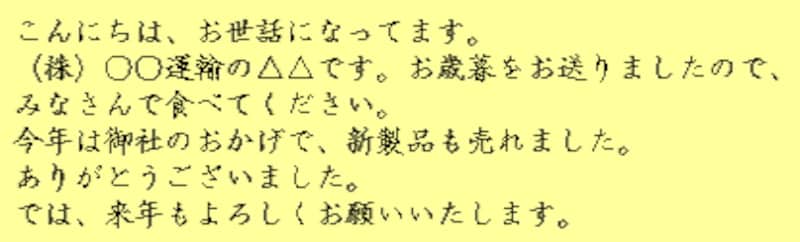 こんにちは、お世話になってます。
（株）○○運輸の△△です。お歳暮をお送りましたので、
みなさんで食べてください。
今年は御社のおかげで、新製品も売れました。
ありがとうございました。
では、来年もよろしくお願いいたします。